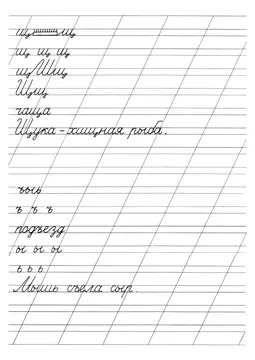 щ щ
щ щ щ
щ Щ щ
Щ щ
чаща
Щука - хищная рыба.
ъ ы ь
ъ ъ ъ
подъезд
ы ы ы
ь ь ь
Мышь съела сыр.